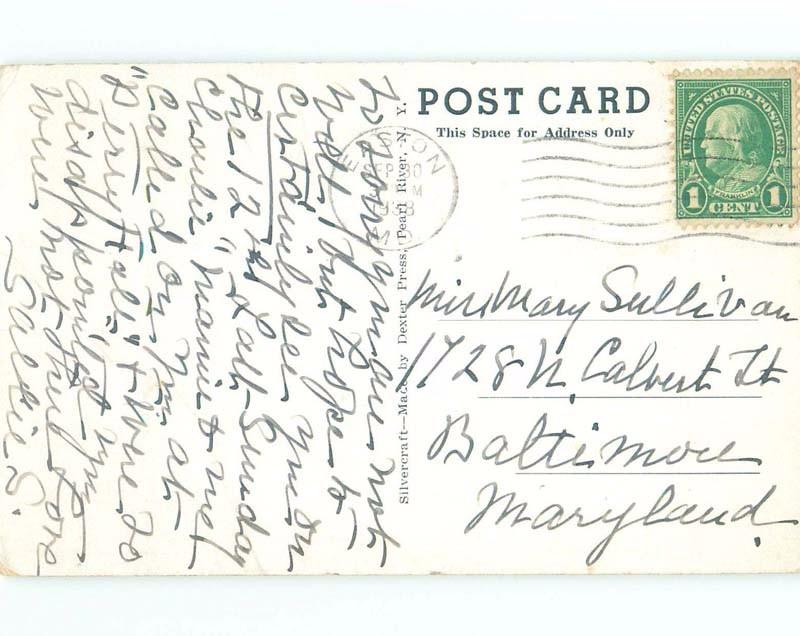 POST CARD
This Space for Address Only
UNITED STATES POSTAGE
FRANKLIN
1 CENT 1
EASTON
SEP 30
M
1938
MD
Silvercraft—Made by Dexter Press, Pearl River, N. Y.
Miss Mary Sullivan
1728 N. Calvert St
Baltimore
Maryland
So sorry you're not
well, but hope to
certainly see you on
the 12th. Last Sunday
Charlie, Nannie & me
called on Mr. at
"Perry Hall" & were so
disappointed you
were not there. Love
Sallie S.